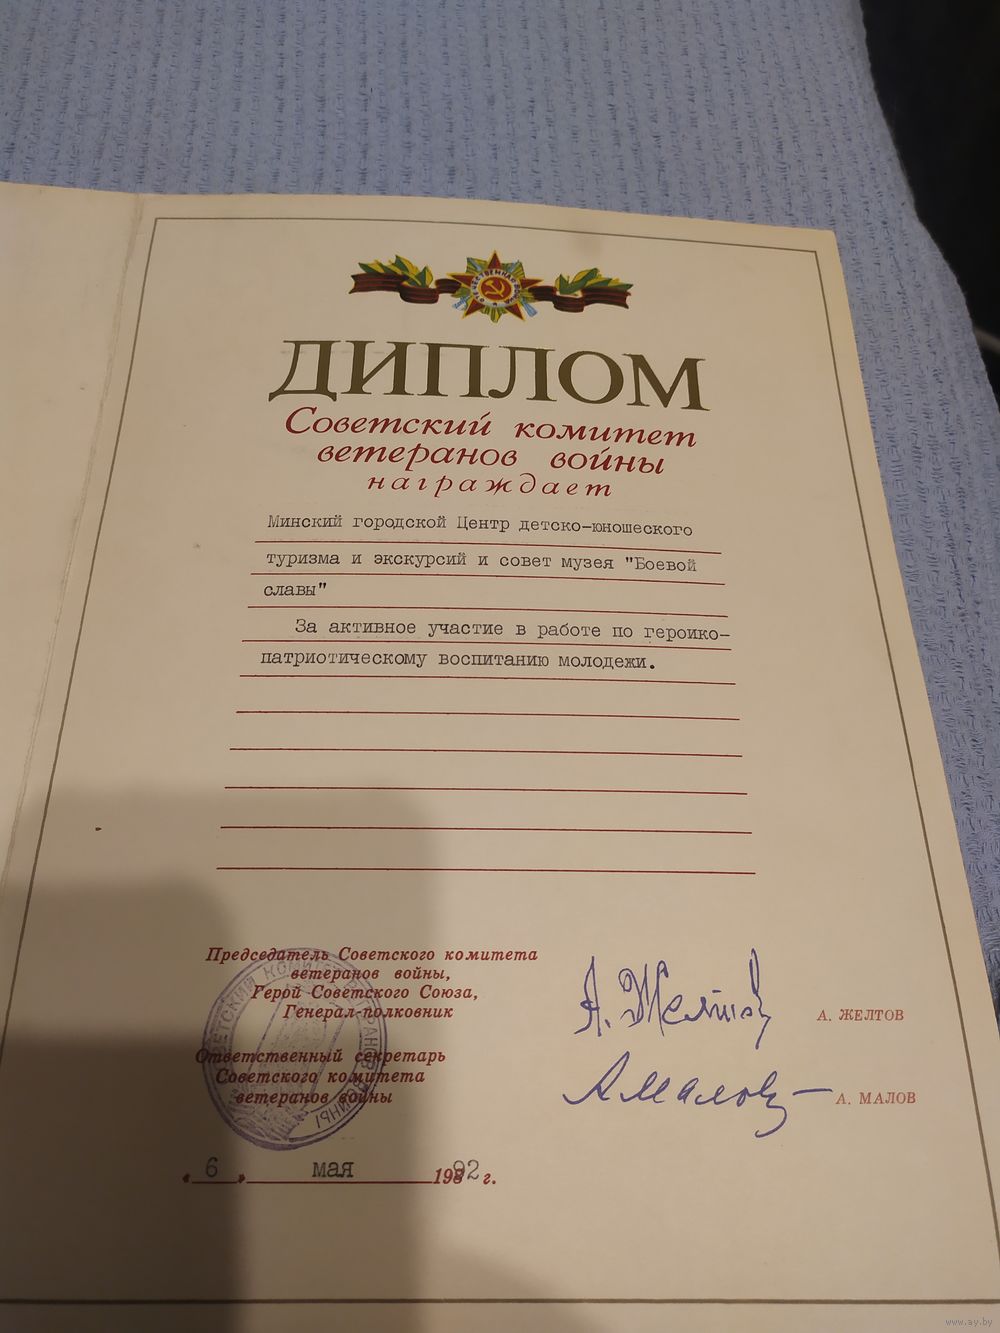 ОТЕЧЕСТВЕННАЯ ВОЙНА
ДИПЛОМ
Советский комитет
ветеранов войны
награждает
Минский городской Центр детско-юношеского
туризма и экскурсий и совет музея "Боевой
славы"
За активное участие в работе по героико-
патриотическому воспитанию молодежи.
Председатель Советского комитета
ветеранов войны,
Герой Советского Союза,
Генерал-полковник
А. Желтов
А. ЖЕЛТОВ
Ответственный секретарь
Советского комитета
ветеранов войны
АМалов
А. МАЛОВ
СОВЕТСКИЙ КОМИТЕТ ВЕТЕРАНОВ ВОЙНЫ
«6» мая 1992 г.
www.ay.by